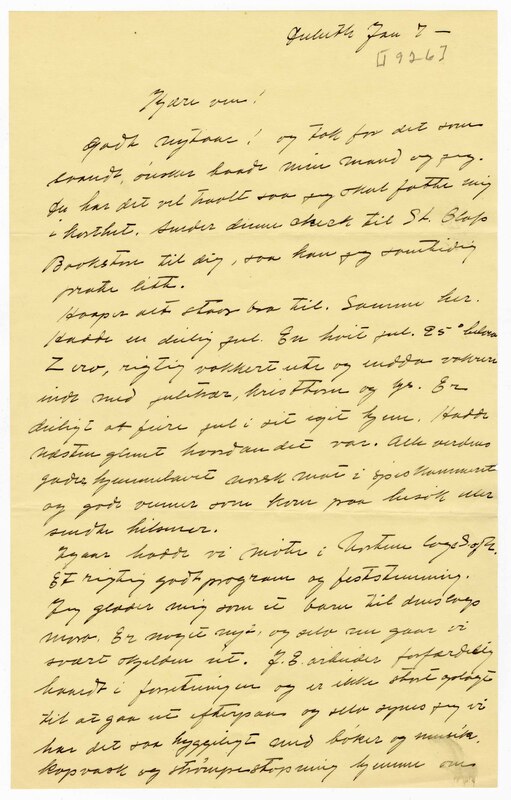 Duluth Jan 7 —
[1926]
Kjære ven!
Godt nytaar! og tak for det som
svandt, ønsker baade min mand og jeg.
Du har det vel travlt saa jeg skal fatte mig
i korthet. Sender denne check til St. Olaf
Bookstore til dig, saa kan jeg samtidig
prate litt.
Haaper alt staar bra til. Samme her.
Hadde en deilig jul. En hvit jul. 25° below
Zero, rigtig vakkert ute og endda vakrere
inde med juletrær, kristtorn og lys. Er
deiligt at feire jul i sit eget hjem. Hadde
næsten glemt hvordan det var. Alle verdens
goder hjemmelavet norsk mat i spiskammeret
og gode venner som kom paa besøk eller
sendte hilsner.
Igaar hadde vi møte i Nortun loge S of N.
Et rigtig godt program og feststemning.
Jeg glæder mig som et barn til dens
moro. Er noget nyt, og selv nu gaar vi
svært skjelden ut. J. E. arbeider forfærdelig
haardt i forretningen og er ikke stort oplagt
til at gaa ut efterpaa og selv synes jeg vi
har det saa hyggeligt med bøker og musik,
kopvask og strømpestopning hjemme om